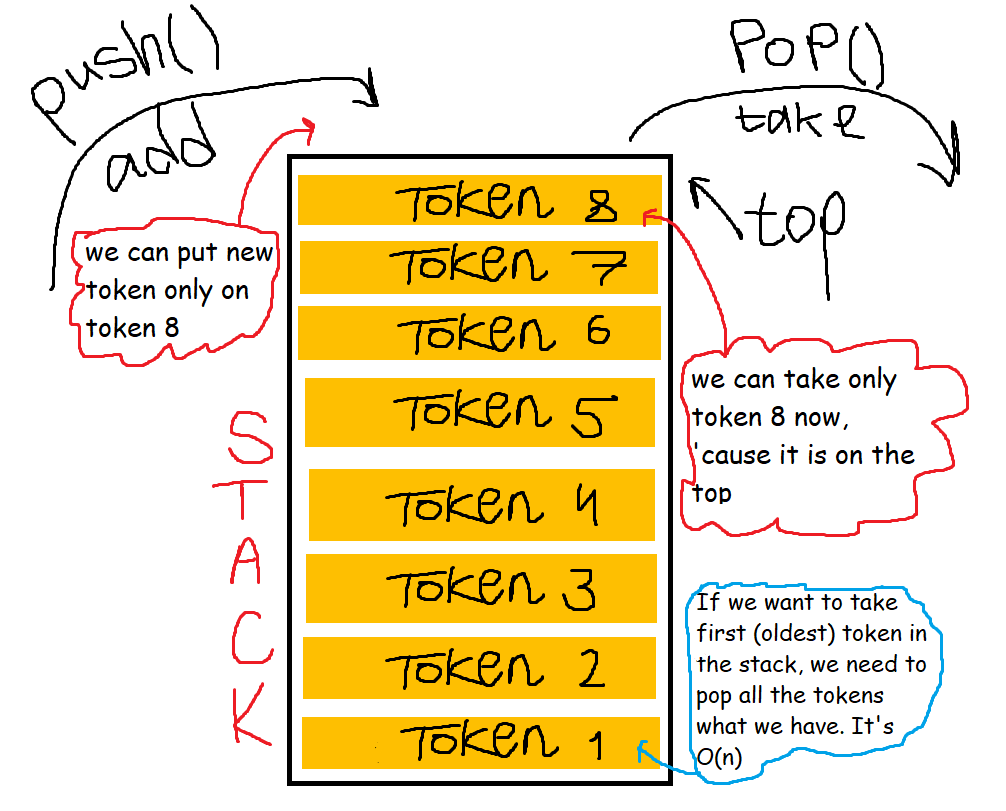 push()
add
Pop()
take
top
we can put new
token only on
token 8
Token 8
Token 7
Token 6
Token 5
Token 4
Token 3
Token 2
Token 1
we can take only
token 8 now,
'cause it is on the
top
S
T
A
C
K
If we want to take
first (oldest) token in
the stack, we need to
pop all the tokens
what we have. It's
O(n)